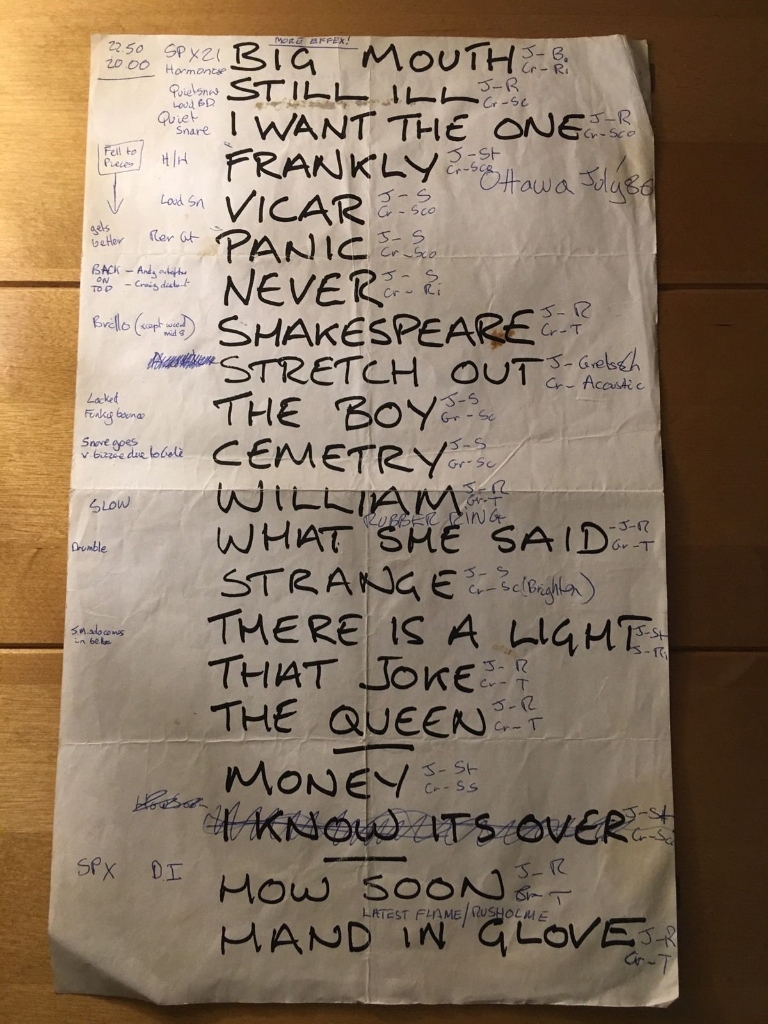 MORE EFFEX!
22.50 SPX21 BIG MOUTH J-B.
20.00 Harmoniser Cr-Ri
Quiet snare STILL ILL J-R
Loud BD Cr-Sc
Quiet snare I WANT THE ONE J-R
Cr-Sco
Fell to Pieces H/H FRANKLY J-St
Cr-Sco
Ottawa July 86
Loud Sn VICAR J-S
Cr-Sco
gets better Rev Gt PANIC J-S
Cr-Sco
BACK ON TOP - Andy - Craig NEVER J-S
Cr-Ri
Brello (xcept weed mid 8) SHAKESPEARE J-R
Cr-T
STRETCH OUT J-Gretsch
Cr-Acoustic
Locked THE BOY J-S
Funky bounce Cr-Sc
Snare goes CEMETRY J-S
v bizzare due to Gate Cr-Sc
SLOW WILLIAM J-R
Cr-T
RUBBER RING
Drumble WHAT SHE SAID -J-R
Cr-T
STRANGE J-S
Cr-Sc (Brighton)
THERE IS A LIGHT J-St
S-Ri
THAT JOKE J-R
Cr-T
THE QUEEN J-R
Cr-T
MONEY J-St
Cr-Ss
I KNOW ITS OVER J-St
Cr-Sc
SPX D.I HOW SOON J-R
Cr-T
LATEST FLAME/RUSHOLME
HAND IN GLOVE J-R
Cr-T